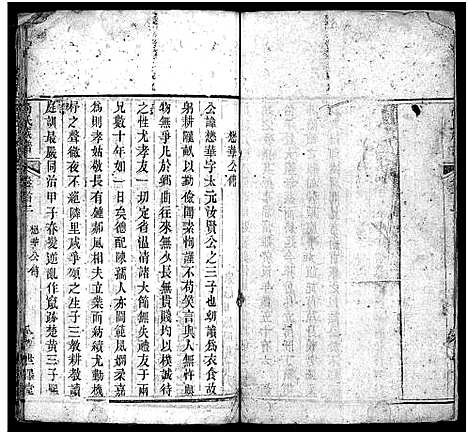 懋華公傳
公諱懋華字太元汝賢公之三子也朝讀為衣食故
躬耕隴畝以勤儉聞樸恂謹不苟笑言與人無忤與
物無爭凡於鄉曲往來無長無貴賤均以樸誠待
之性尤孝友一切定省溫清諸大節無失禮友于兩
兄數十年如一日矣德配陳孺人亦閫範風嫻柔嘉
為則孝姑敬長有鍾郝風相夫立業而紡績尤勤機
杼之聲徹夜不絕隣里咸爭頌之生子三教耕教讀
庭訓最嚴同治甲子春髮逆亂作竄踞楚黃三子
氏族譜
卷首二
懋華公傳
世澤堂